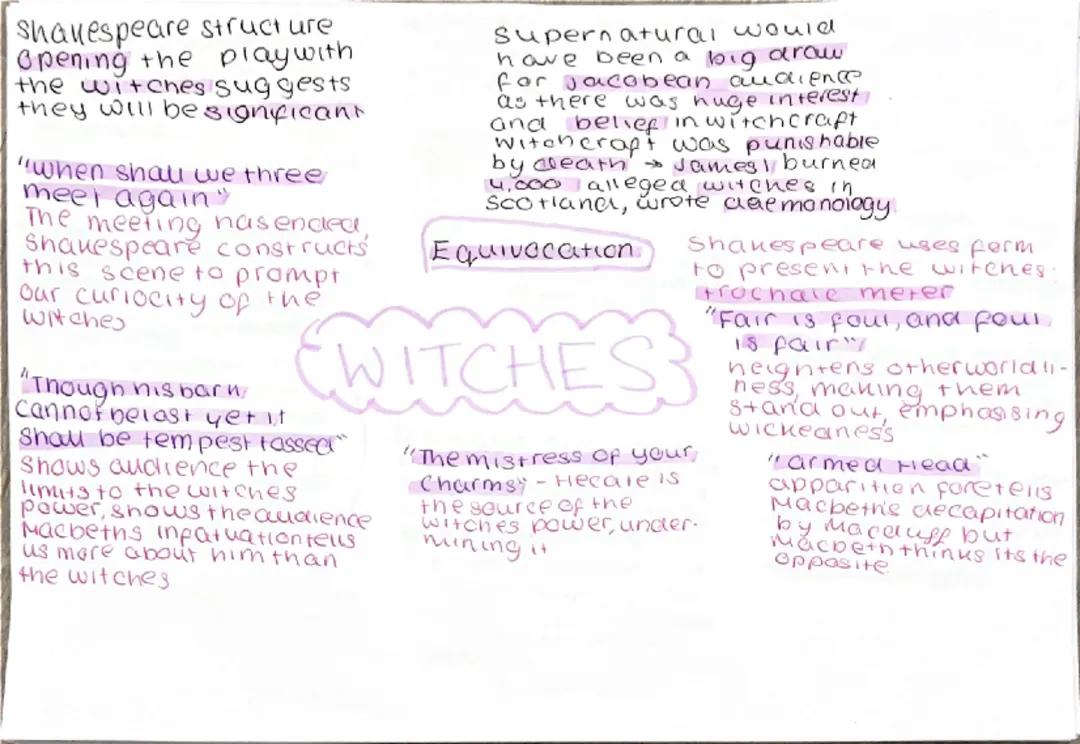 Shakespeare structure
opening the play with
the witches suggests
they will be significant
"When shall we three
meet again"
The meeting has ended,
Shakespeare constructs
this scene to prompt
our curiocity of the
witches
"Though his bark
cannot be lost yet it
shall be tempest tossed"
shows audience the
limits to the witches
power, shows the audience
Macbeths infatuation tells
us more about him than
the witches
Supernatural would
have been a big draw
for Jacobean audience
as there was huge interest
and belief in witchcraft
witchcraft was punishable
by death → James I burned
4,000 alleged witches in
Scotland, wrote daemonology
Equivocation
WITCHES
"The mistress of your
charms" - Hecate is
the source of the
witches power, under-
mining it
Shakespeare uses form
to present the witches.
trochaic meter
"Fair is foul, and foul
is fair"
heightens otherworldli-
ness, making them
stand out, emphasising
wickedness
"armed head"
apparition foretells
Macbeth's decapitation
by Macduff but
Macbeth thinks its the
opposite